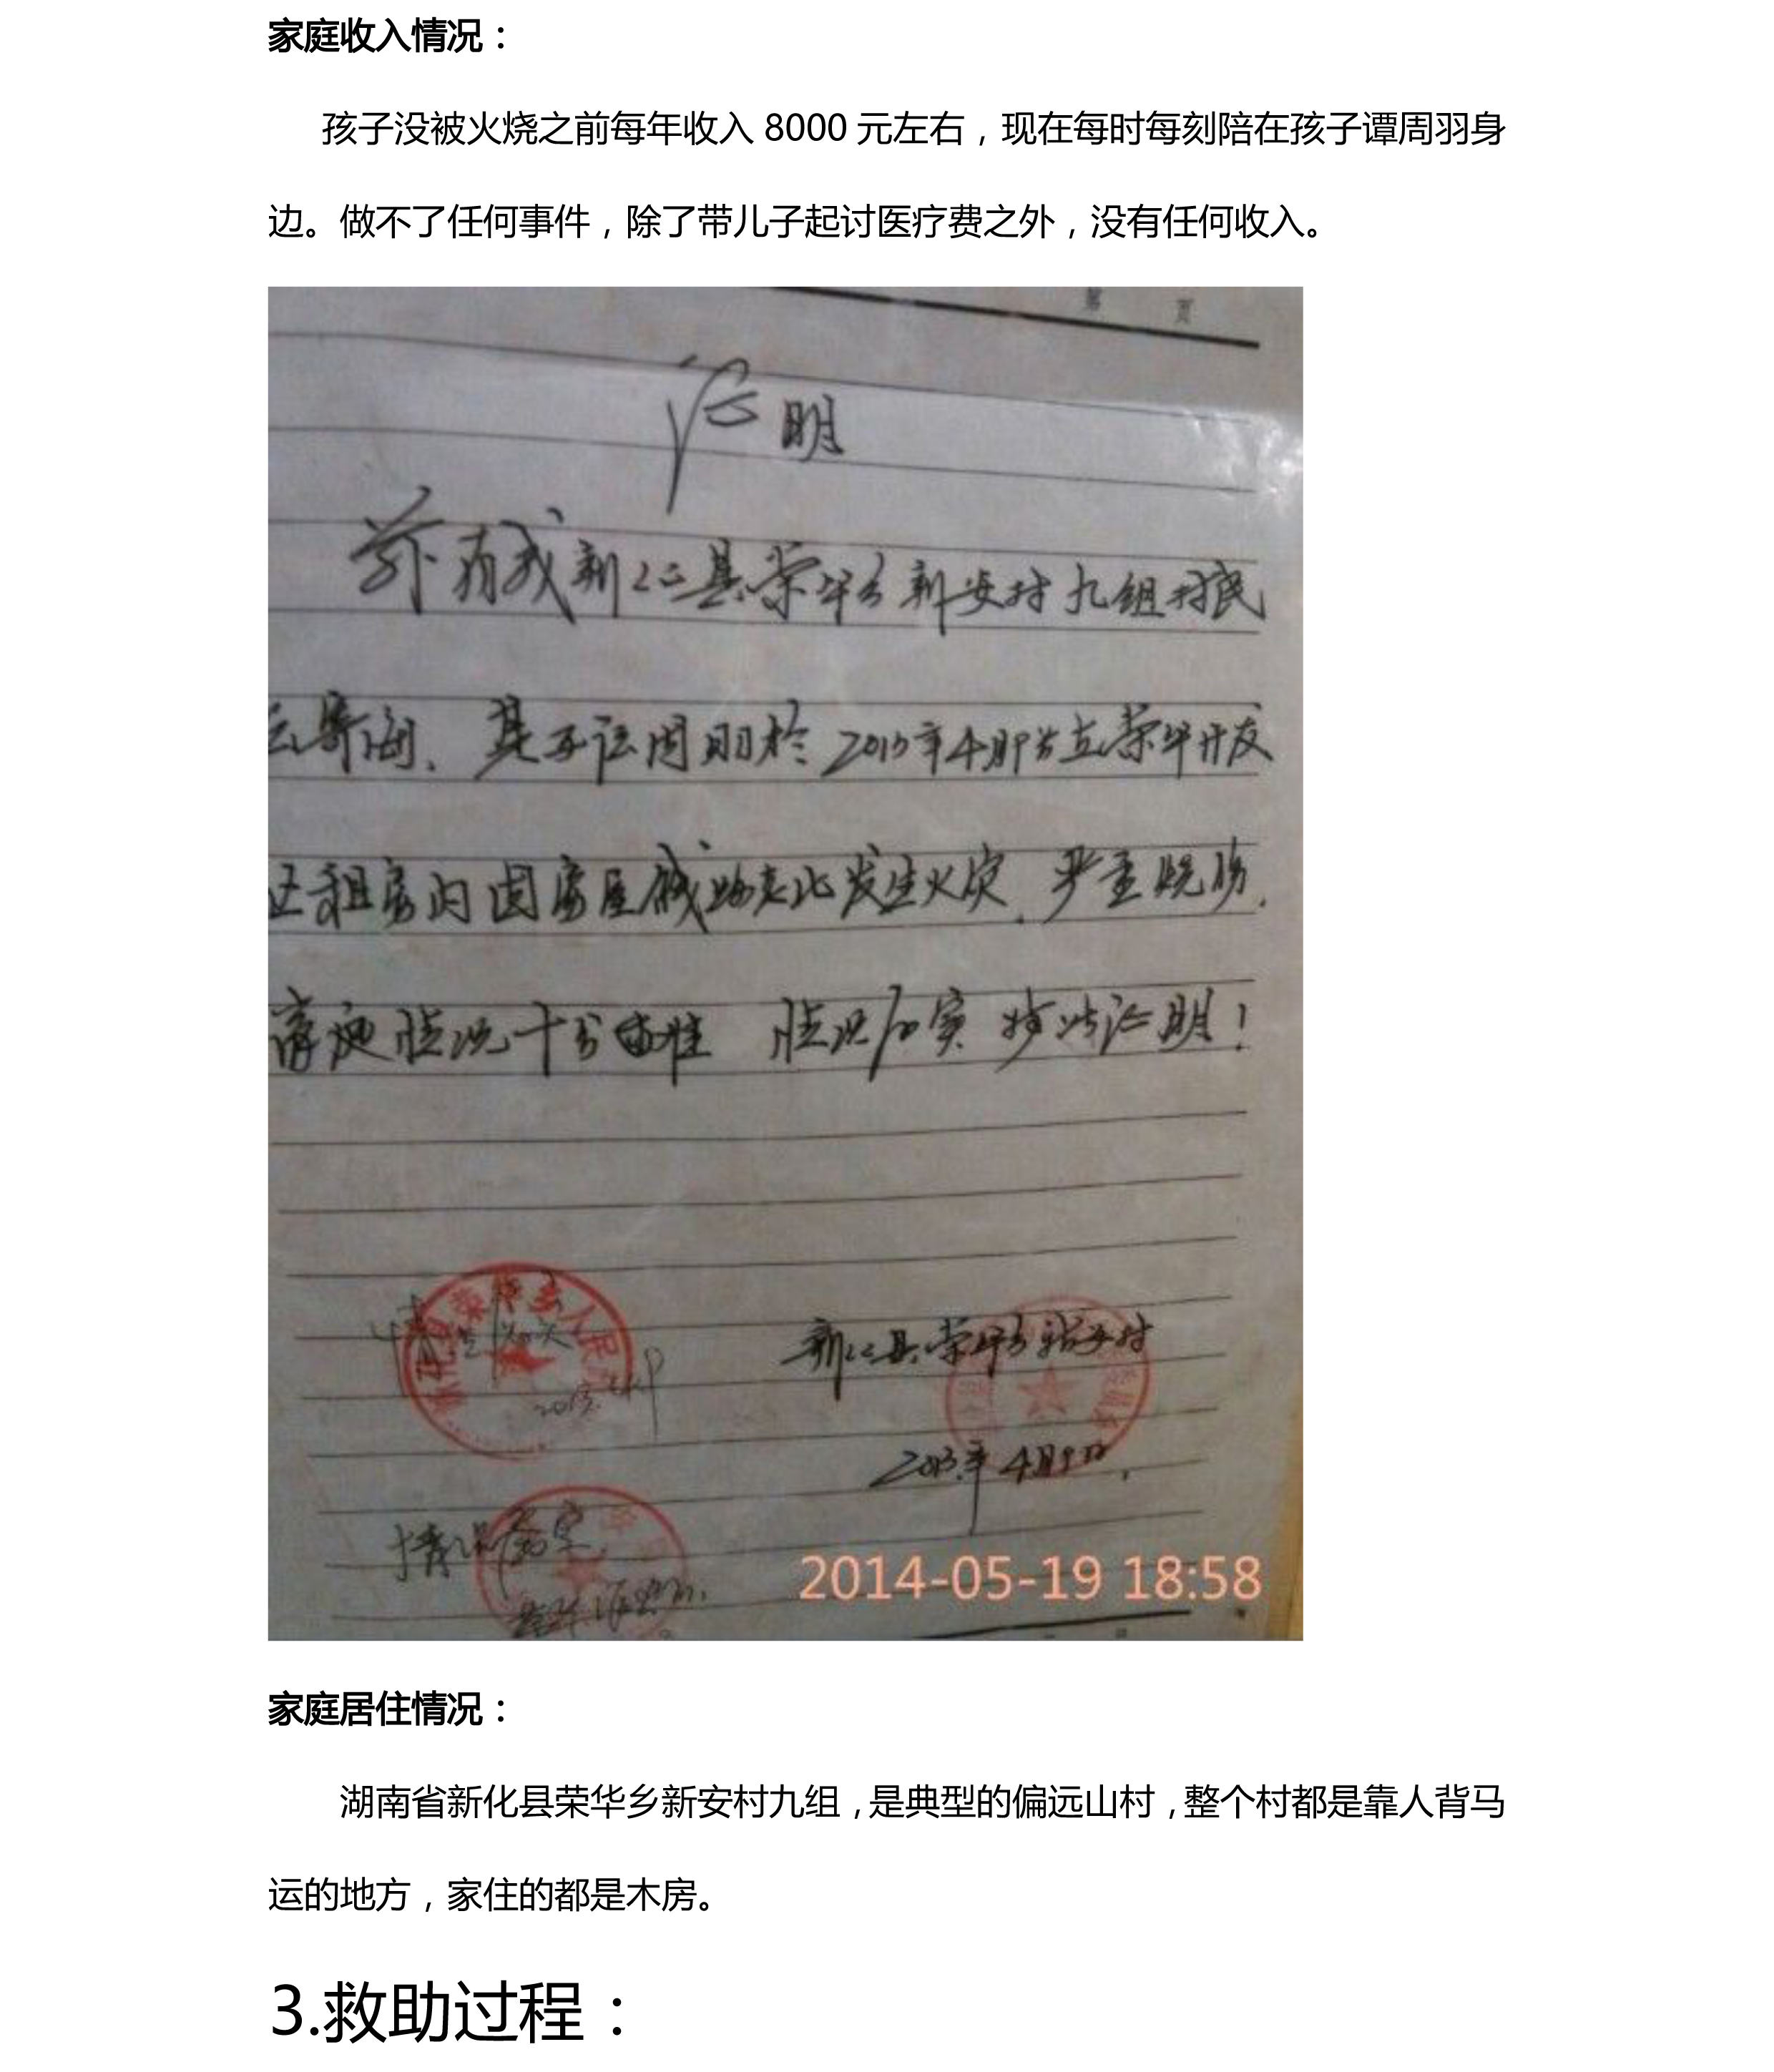 家庭收入情况：
孩子没被火烧之前每年收入 8000 元左右，现在每时每刻陪在孩子谭周羽身
边。做不了任何事件，除了带儿子起讨医疗费之外，没有任何收入。
第 页
证明
兹有我新化县荣华乡新安村九组村民
其子谭周羽于2013年4月 荣华开发
区租房内因房屋线路老化发生火灾.严重烧伤.
情况十分困难 情况属实 特此证明！
荣华乡人民
情况属实
新化县荣华乡新安村
2013年4月9日.
情况属实.
2014-05-19 18:58
家庭居住情况：
湖南省新化县荣华乡新安村九组，是典型的偏远山村，整个村都是靠人背马
运的地方，家住的都是木房。
3.救助过程：